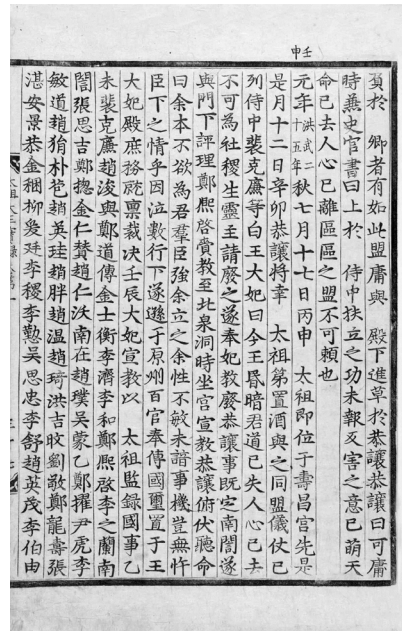 壬申
負於　卿者有如此盟庸與　殿下進草於恭讓恭讓曰可庸
時兼史官書曰上於　侍中扶立之功未報反害之意已萌天
命已去人心已離區區之盟不可賴也
元年洪武二十五年秋七月十七日丙申　太祖即位于壽昌宮先是
是月十二日辛卯恭讓將幸　太祖第置酒與之同盟儀仗已
列侍中裴克廉等白王大妃曰今王昏暗君道已失人心已去
不可為社稷生靈主請廢之遂奉妃敎廢恭讓事旣定南誾遂
與門下評理鄭熙啓齎敎至北泉洞時坐宮宣敎恭讓俯伏聽命
曰余本不欲為君羣臣強余立之余性不敏未諳事機豈無忤
臣下之情乎因泣數行下遂遜于原州百官奉傳國璽置于王
大妃殿庶務就稟裁決壬辰大妃宣敎以　太祖監錄國事乙
未裴克廉趙浚與鄭道傳金士衡李濟李和鄭熙啓李之蘭南
誾張思吉鄭摠金仁贊趙仁沃南在趙璞吳蒙乙鄭擢尹虎李
敏道趙狷朴苞趙英珪趙胖趙溫趙琦洪吉旼劉敬鄭龍壽張
湛安景恭金稛柳爰廷李稷李懃吳思忠李舒趙英茂李伯由